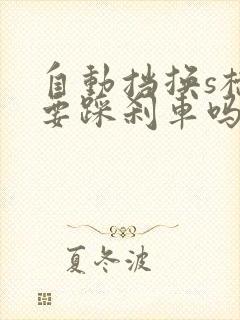 自動挡换s
要踩刹車吗
夏冬波